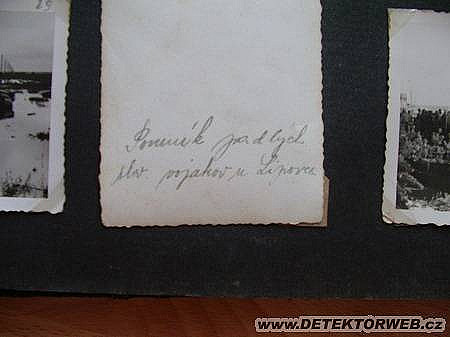 29
Pomník padlých
slov. vojakov u Lipovca
WWW.DETEKTORWEB.CZ